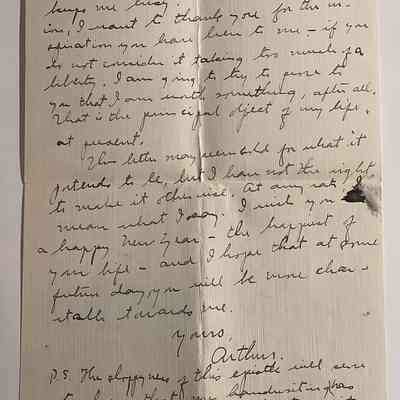 keeps me busy.
ion, I want to thank you for the in-
spiration you have been to me – if you
do not consider it taking too much of a
liberty. I am going to try to prove to
you that I am worth something, after all.
That is the principal object of my life,
at present.
This letter may seem cold for what it
pretends to be, but I have not the right
to make it otherwise. At any rate, I
mean what I say. I wish you
a happy New Year – the happiest of
your life – and I hope that at some
future day, you will be more char-
itable towards me.
Yours,
Arthur.
P.S. The sloppyness of this epistle will serve
to show that my handwriting has